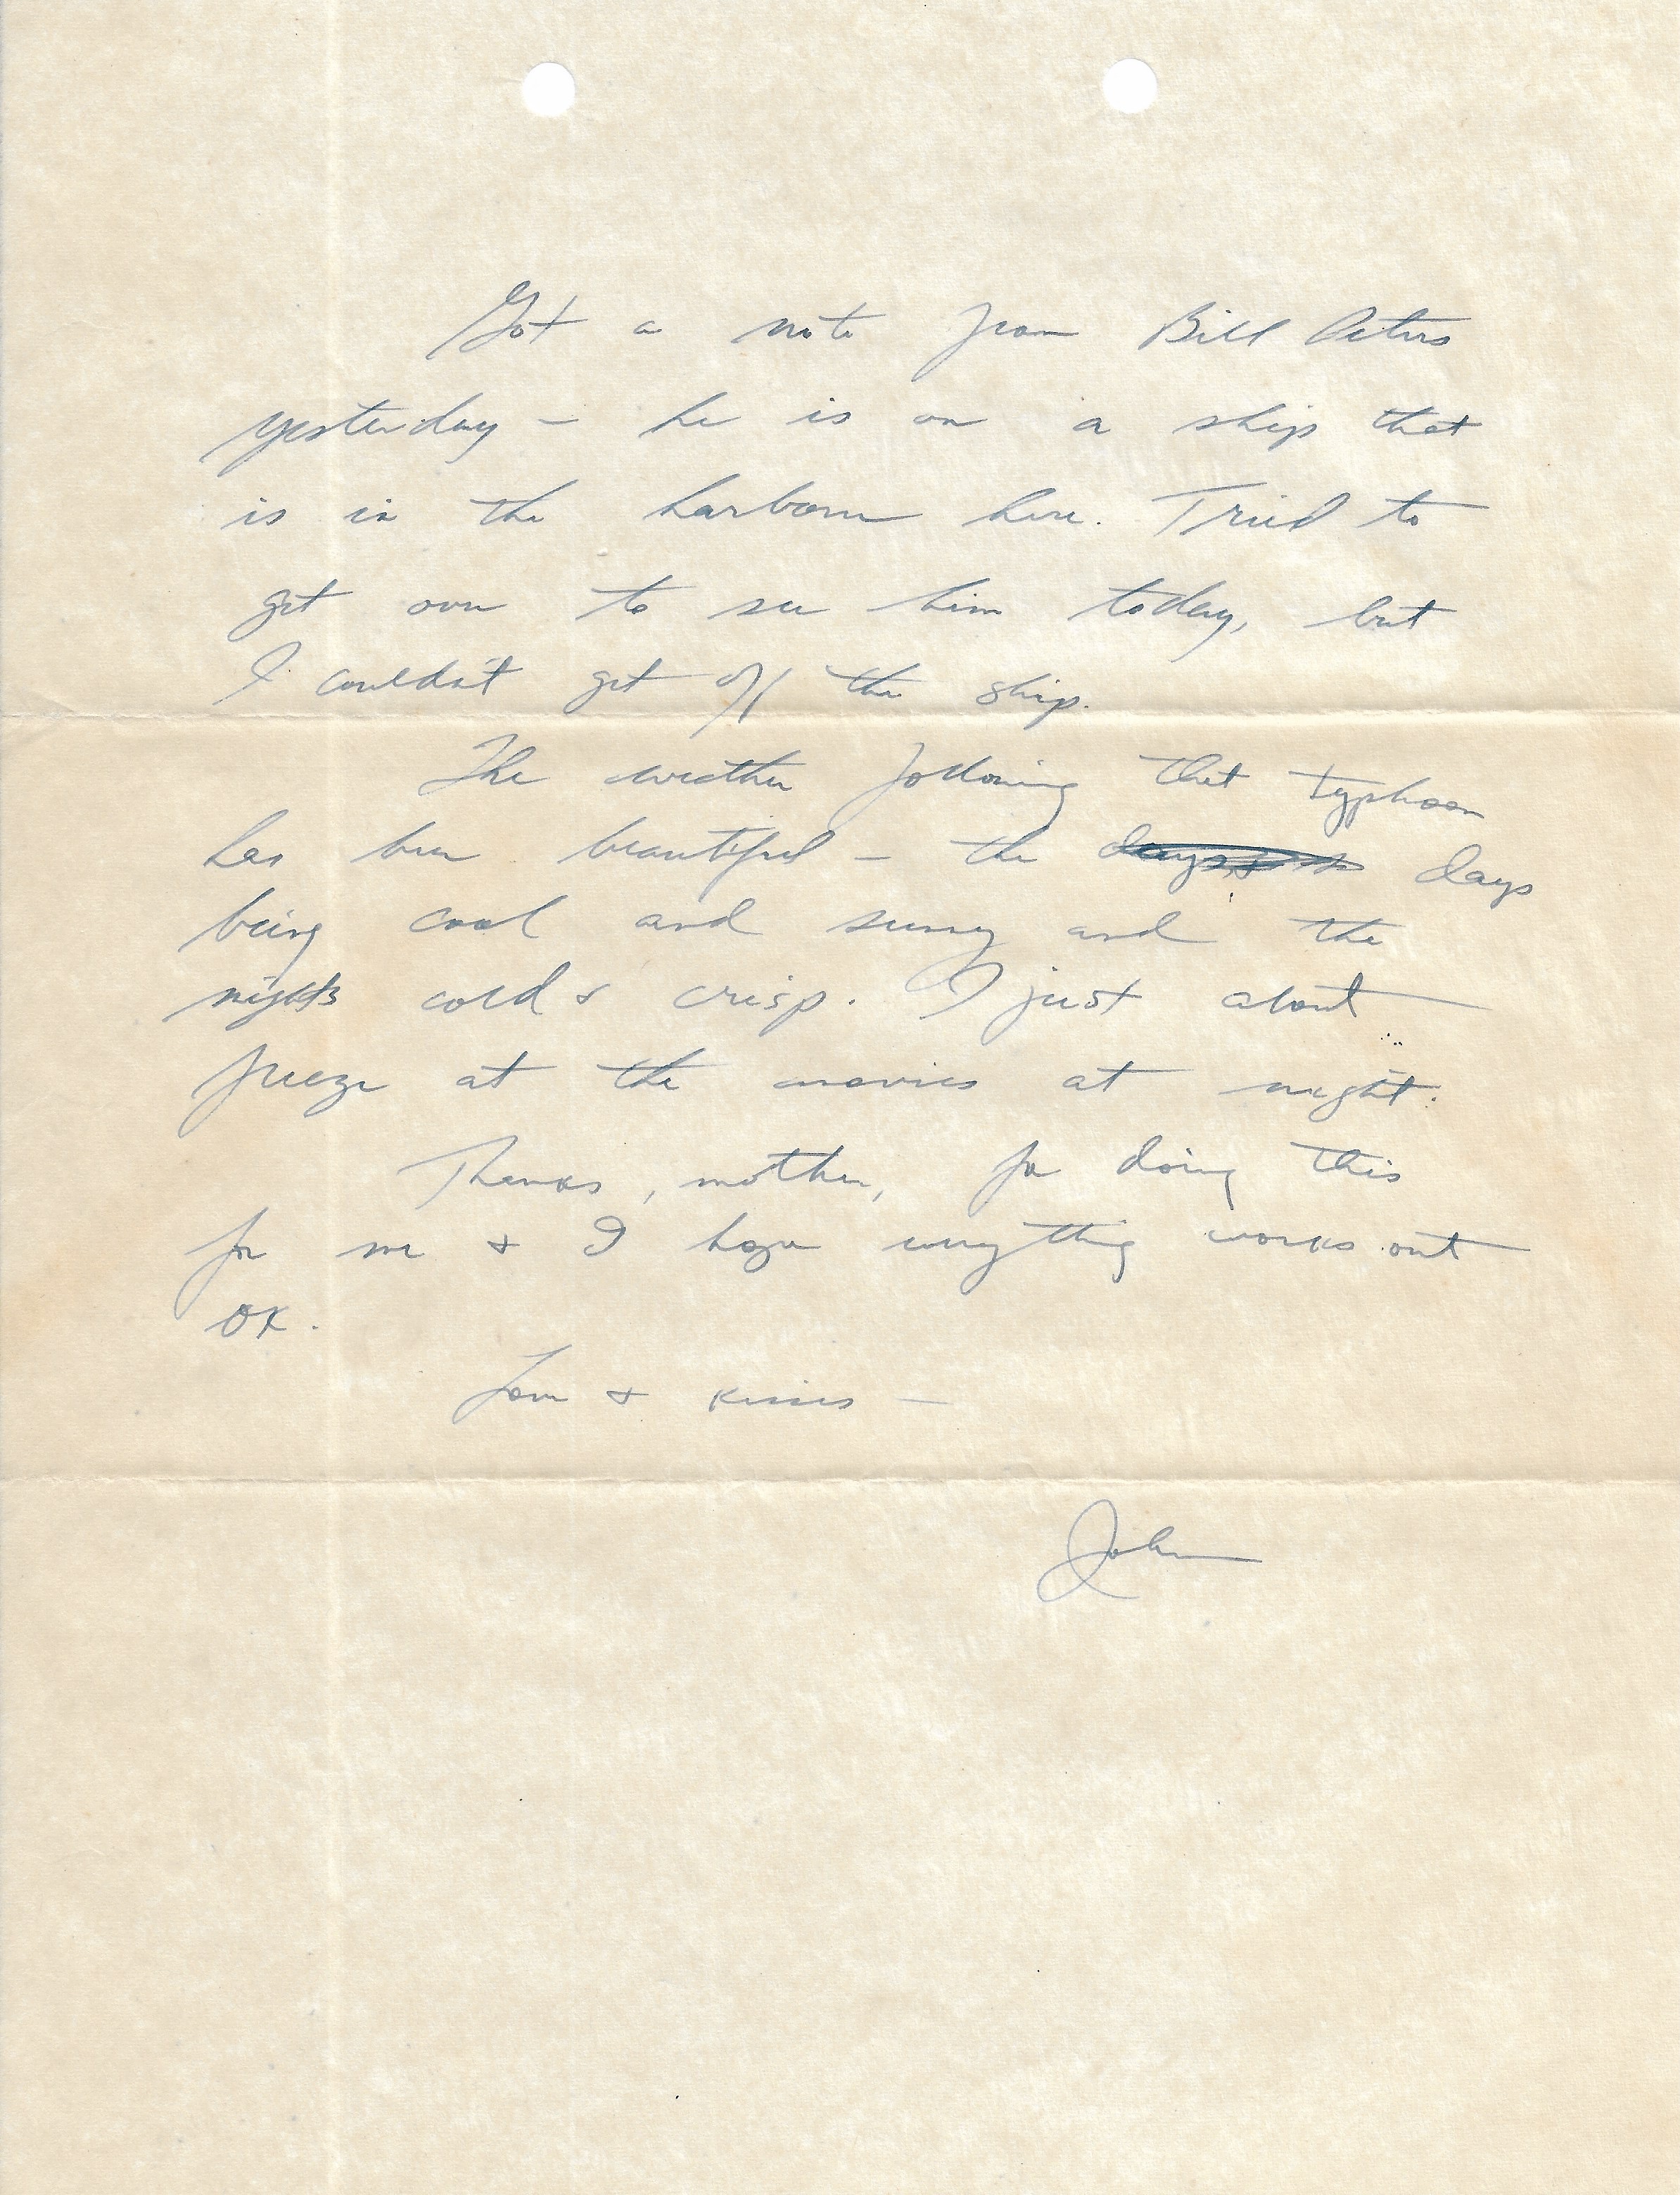 Got a note from Bill Peters
yesterday – he is on a ship that
is in the harbour here. Tried to
get over to see him today, but
I couldn't get off the ship.
The weather following that typhoon
has been beautiful – the days
being cool and sunny and the
nights cold & crisp. I just about
freeze at the movies at night.
Thanks, mother, for doing this
for me & I hope everything works out
OK.
Love & kisses –
John